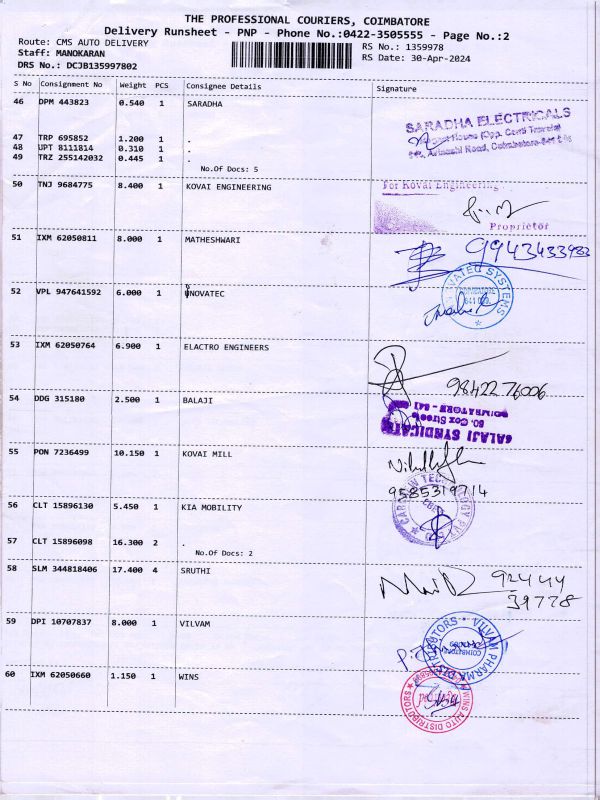 THE PROFESSIONAL COURIERS, COIMBATORE
Delivery Runsheet - PNP - Phone No.:0422-3505555 - Page No.:2
Route: CMS AUTO DELIVERY RS No.: 1359978
Staff: MANOKARAN RS Date: 30-Apr-2024
DRS No.: DCJB135997802
S No Consignment No Weight PCS Consignee Details Signature
46 DPM 443823 0.540 1 SARADHA
SARADHA ELECTRICALS
47 TRP 695852 1.200 1 .
48 UPT 8111814 0.310 1 .
Avinashi Road, Coimbatore
49 TRZ 255142032 0.445 1 .
No.Of Docs: 5
50 TNJ 9684775 8.400 1 KOVAI ENGINEERING For Kovai Engineering
Proprietor
51 IXM 62050811 8.000 1 MATHESHWARI 9943433983
52 VPL 947641592 6.000 1 UNOVATEC
53 IXM 62050764 6.900 1 ELACTRO ENGINEERS
9842276006
54 DDG 315180 2.500 1 BALAJI
BALAJI SYNDICATE
50, Cox Street
COIMBATORE - 641
55 PON 7236499 10.150 1 KOVAI MILL
9585319714
56 CLT 15896130 5.450 1 KIA MOBILITY
57 CLT 15896098 16.300 2 .
No.Of Docs: 2
58 SLM 344818406 17.400 4 SRUTHI 92444
39778
59 DPI 10707837 8.000 1 VILVAM
VILVAM PHARMA DISTRIBUTORS
COIMBATORE
60 IXM 62050660 1.150 1 WINS
WINS AUTO DISTRIBUTORS